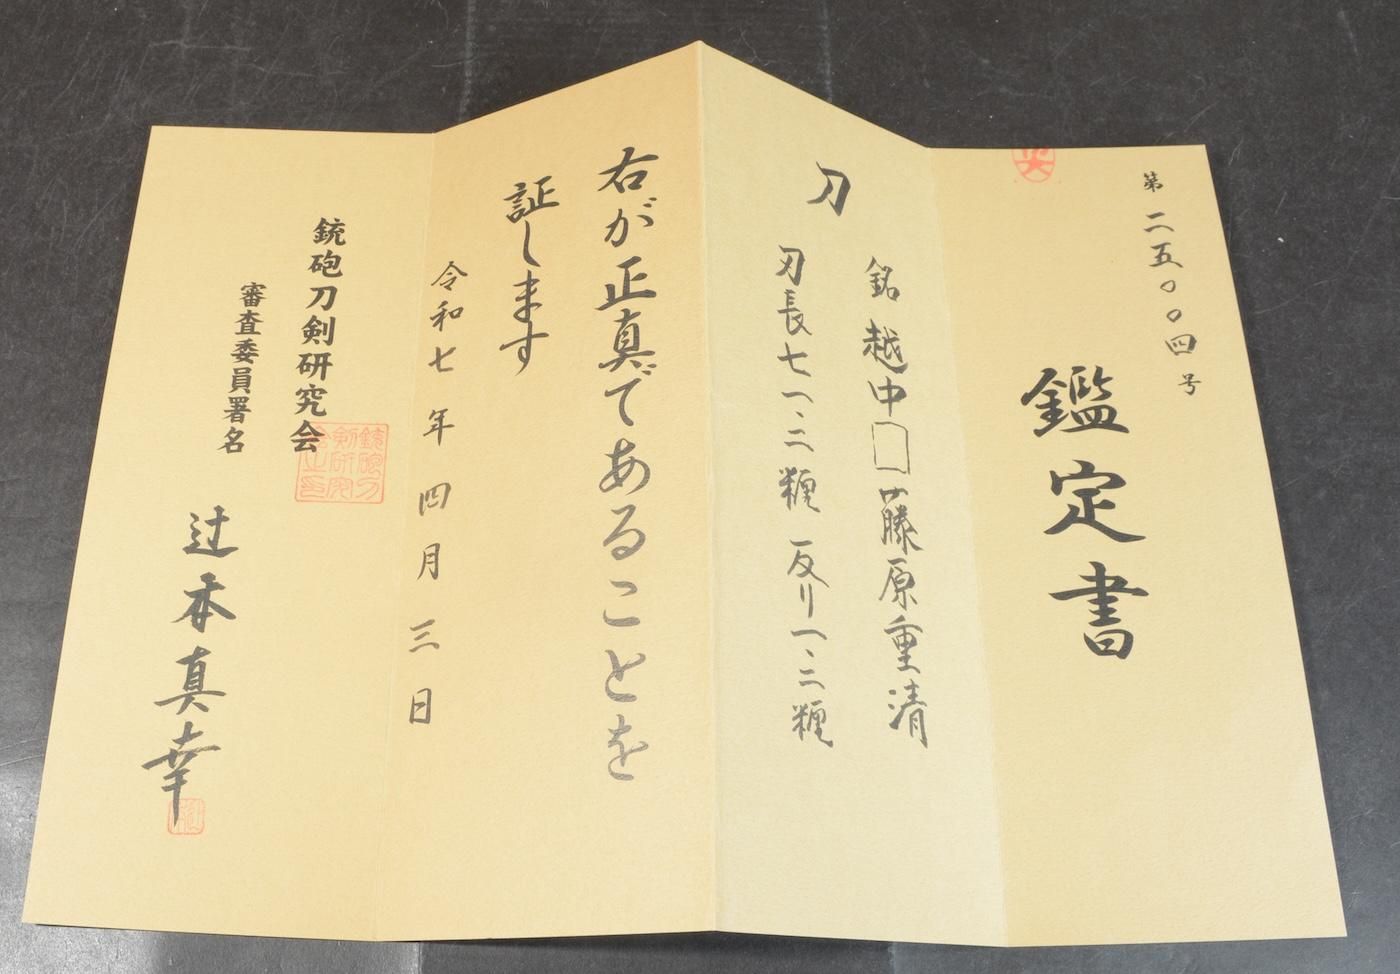 第二五〇〇四号
鑑定書
刀
銘 越中□藤原重清
刃長七一、二糎 反リ一、二糎
右が正真であることを
証します
令和七年四月三日
銃砲刀剣研究会
審査委員署名
辻本真幸